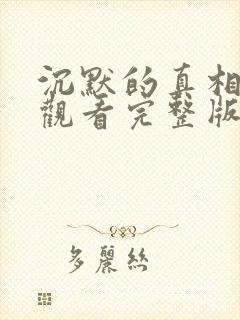 沉默的真相
觀看完整版
多麗絲